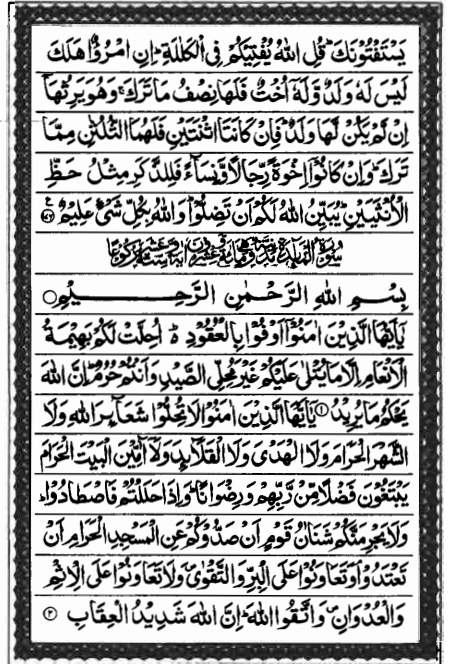 يَسْتَفْتُوْنَكَ ؕ قُلِ اللّٰهُ يُفْتِيْكُمْ فِى الْكَلٰلَةِ ؕ اِنِ امْرُؤٌا هَلَكَ
لَيْسَ لَهٗ وَلَدٌ وَّلَهٗۤ اُخْتٌ فَلَهَا نِصْفُ مَا تَرَكَ ۚ وَهُوَ يَرِثُهَاۤ
اِنْ لَّمْ يَكُنْ لَّهَا وَلَدٌ ؕ فَاِنْ كَانَتَا اثْنَتَيْنِ فَلَهُمَا الثُّلُثٰنِ مِمَّا
تَرَكَ ؕ وَاِنْ كَانُوْۤا اِخْوَةً رِّجَالًا وَّنِسَآءً فَلِلذَّكَرِ مِثْلُ حَظِّ
الْاُنْثَيَيْنِ ؕ يُبَيِّنُ اللّٰهُ لَكُمْ اَنْ تَضِلُّوْا ؕ وَاللّٰهُ بِكُلِّ شَىْءٍ عَلِيْمٌ ۝
سورة المائدة مدنية وهي مائة وعشرون اية
بِسْمِ اللّٰهِ الرَّحْمٰنِ الرَّحِيْمِ ۝
يٰۤاَيُّهَا الَّذِيْنَ اٰمَنُوْۤا اَوْفُوْا بِالْعُقُوْدِ ؕ اُحِلَّتْ لَكُمْ بَهِيْمَةُ
الْاَنْعَامِ اِلَّا مَا يُتْلٰى عَلَيْكُمْ غَيْرَ مُحِلِّى الصَّيْدِ وَاَنْتُمْ حُرُمٌ ؕ اِنَّ اللّٰهَ
يَحْكُمُ مَا يُرِيْدُ ۝۱ يٰۤاَيُّهَا الَّذِيْنَ اٰمَنُوْا لَا تُحِلُّوْا شَعَآئِرَ اللّٰهِ وَلَا
الشَّهْرَ الْحَرَامَ وَلَا الْهَدْىَ وَلَا الْقَلَآئِدَ وَلَاۤ آٰمِّيْنَ الْبَيْتَ الْحَرَامَ
يَبْتَغُوْنَ فَضْلًا مِّنْ رَّبِّهِمْ وَرِضْوَانًا ؕ وَاِذَا حَلَلْتُمْ فَاصْطَادُوْا ؕ
وَلَا يَجْرِمَنَّكُمْ شَنَاٰنُ قَوْمٍ اَنْ صَدُّوْكُمْ عَنِ الْمَسْجِدِ الْحَرَامِ اَنْ
تَعْتَدُوْا ۘ وَتَعَاوَنُوْا عَلَى الْبِرِّ وَالتَّقْوٰى ۪ وَلَا تَعَاوَنُوْا عَلَى الْاِثْمِ
وَالْعُدْوَانِ ۪ وَاتَّقُوا اللّٰهَ ؕ اِنَّ اللّٰهَ شَدِيْدُ الْعِقَابِ ۝۲